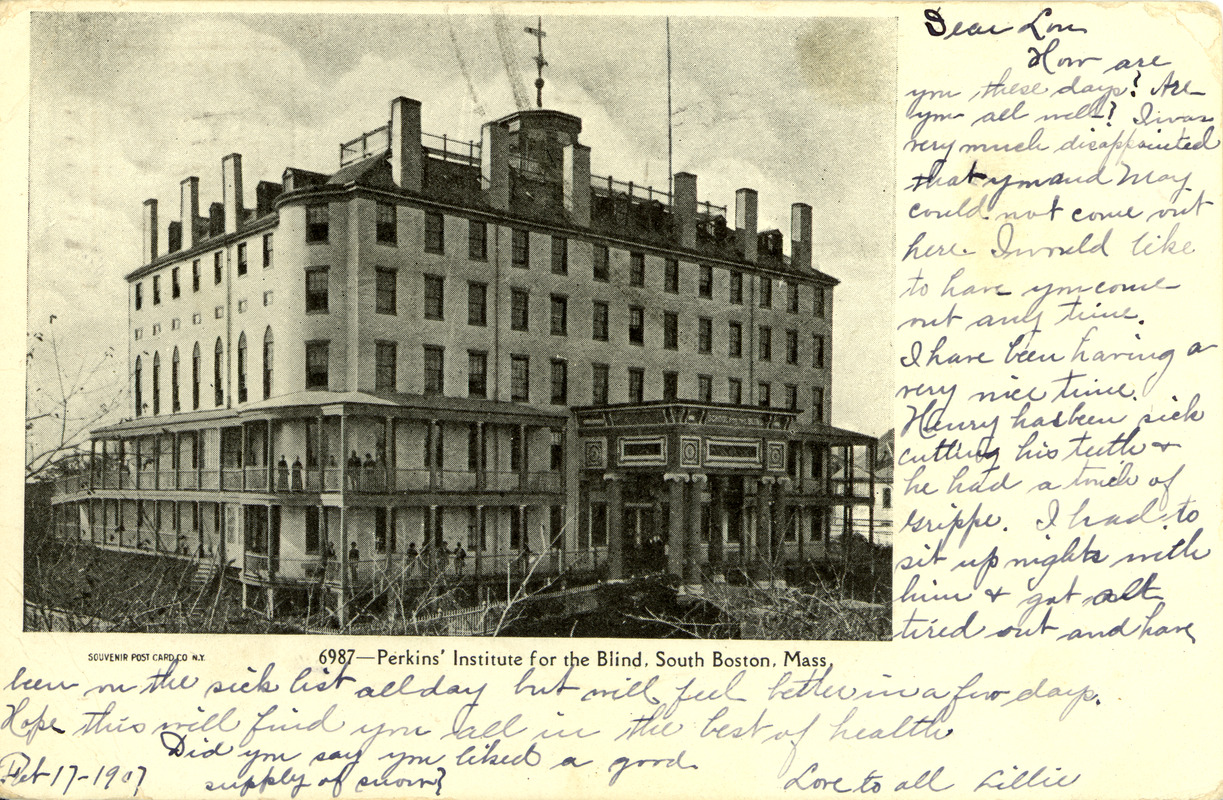 Dear Lou
How are
you these days? Are
you all well? I was
very much disappointed
that you and May
could not come out
here. I would like
to have you come
out any time.
I have been having a
very nice time.
Henry has been sick
cutting his teeth &
he had a touch of
Grippe. I had to
sit up nights with
him & got all
tired out and have
SOUVENIR POST CARD CO N.Y.
6987—Perkins' Institute for the Blind, South Boston, Mass.
been on the sick list all day but will feel better in a few days.
Hope this will find you all in the best of health
Did you say you liked a good
supply of snow?
Feb 17-1907
Love to all Lillie